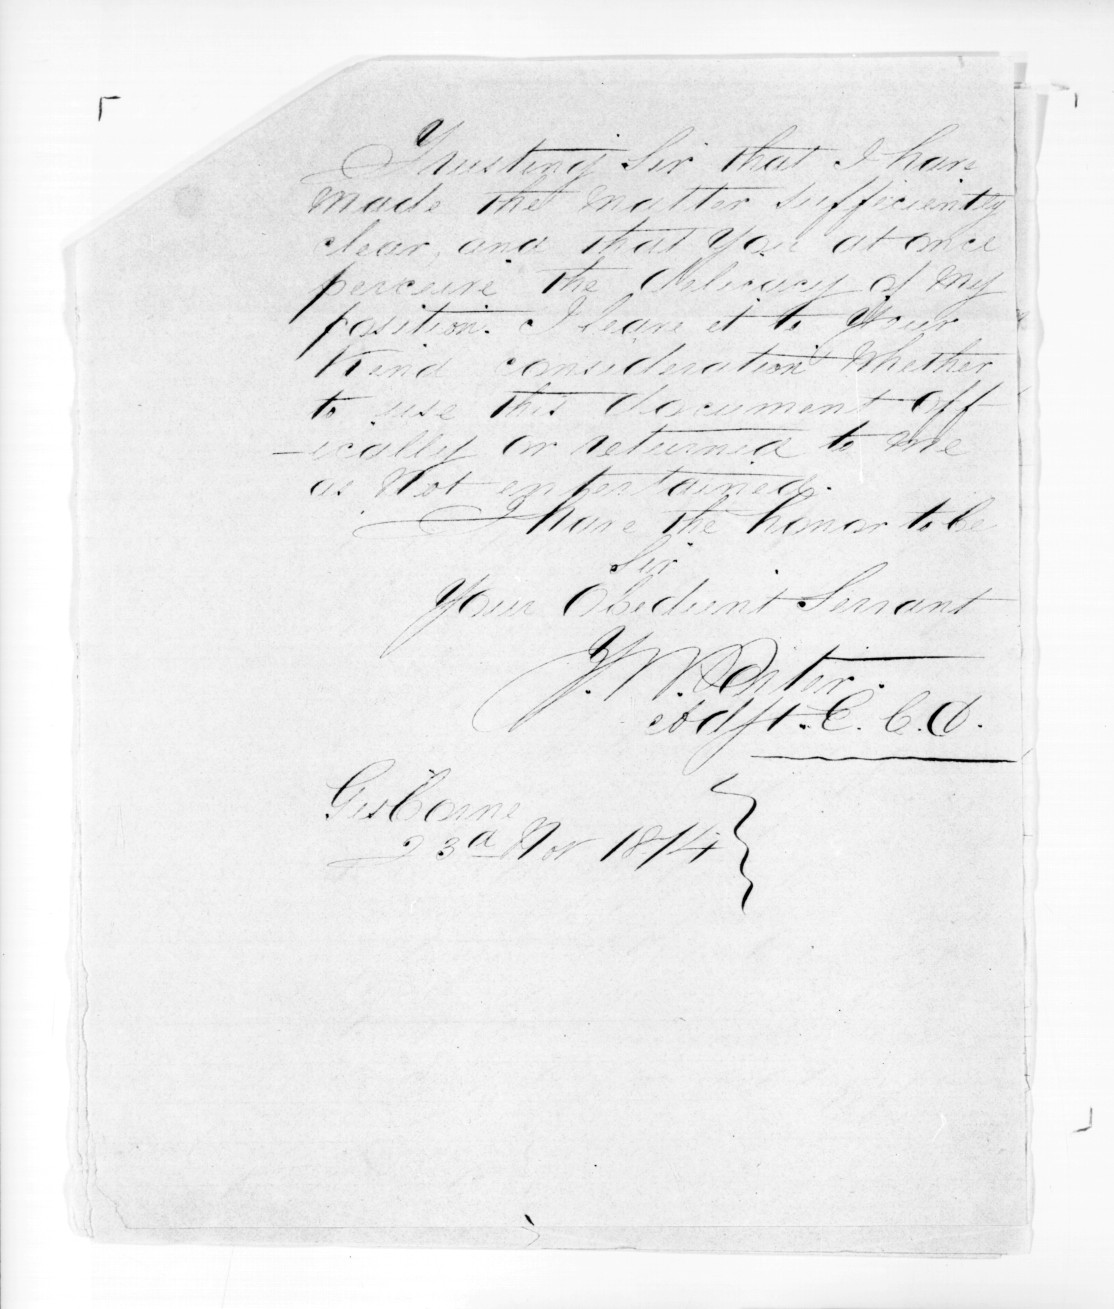 Trusting Sir that I have
made the matter sufficiently
clear, and that you at once
perceive the delicacy of my
position. I leave it to Your
Kind consideration whether
to use this document off
-icially or returned to me
as Not entertained.
I have the honor to be
Sir
Your Obedient Servant
J. W. Porter.
Adjt. C. C. D.
Gisborne
23d Nov 1874